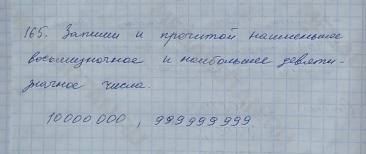 165. Запиши и прочитай наименьшее
восьмизначное и наибольшее девяти-
значное числа.
10000000, 999999999.